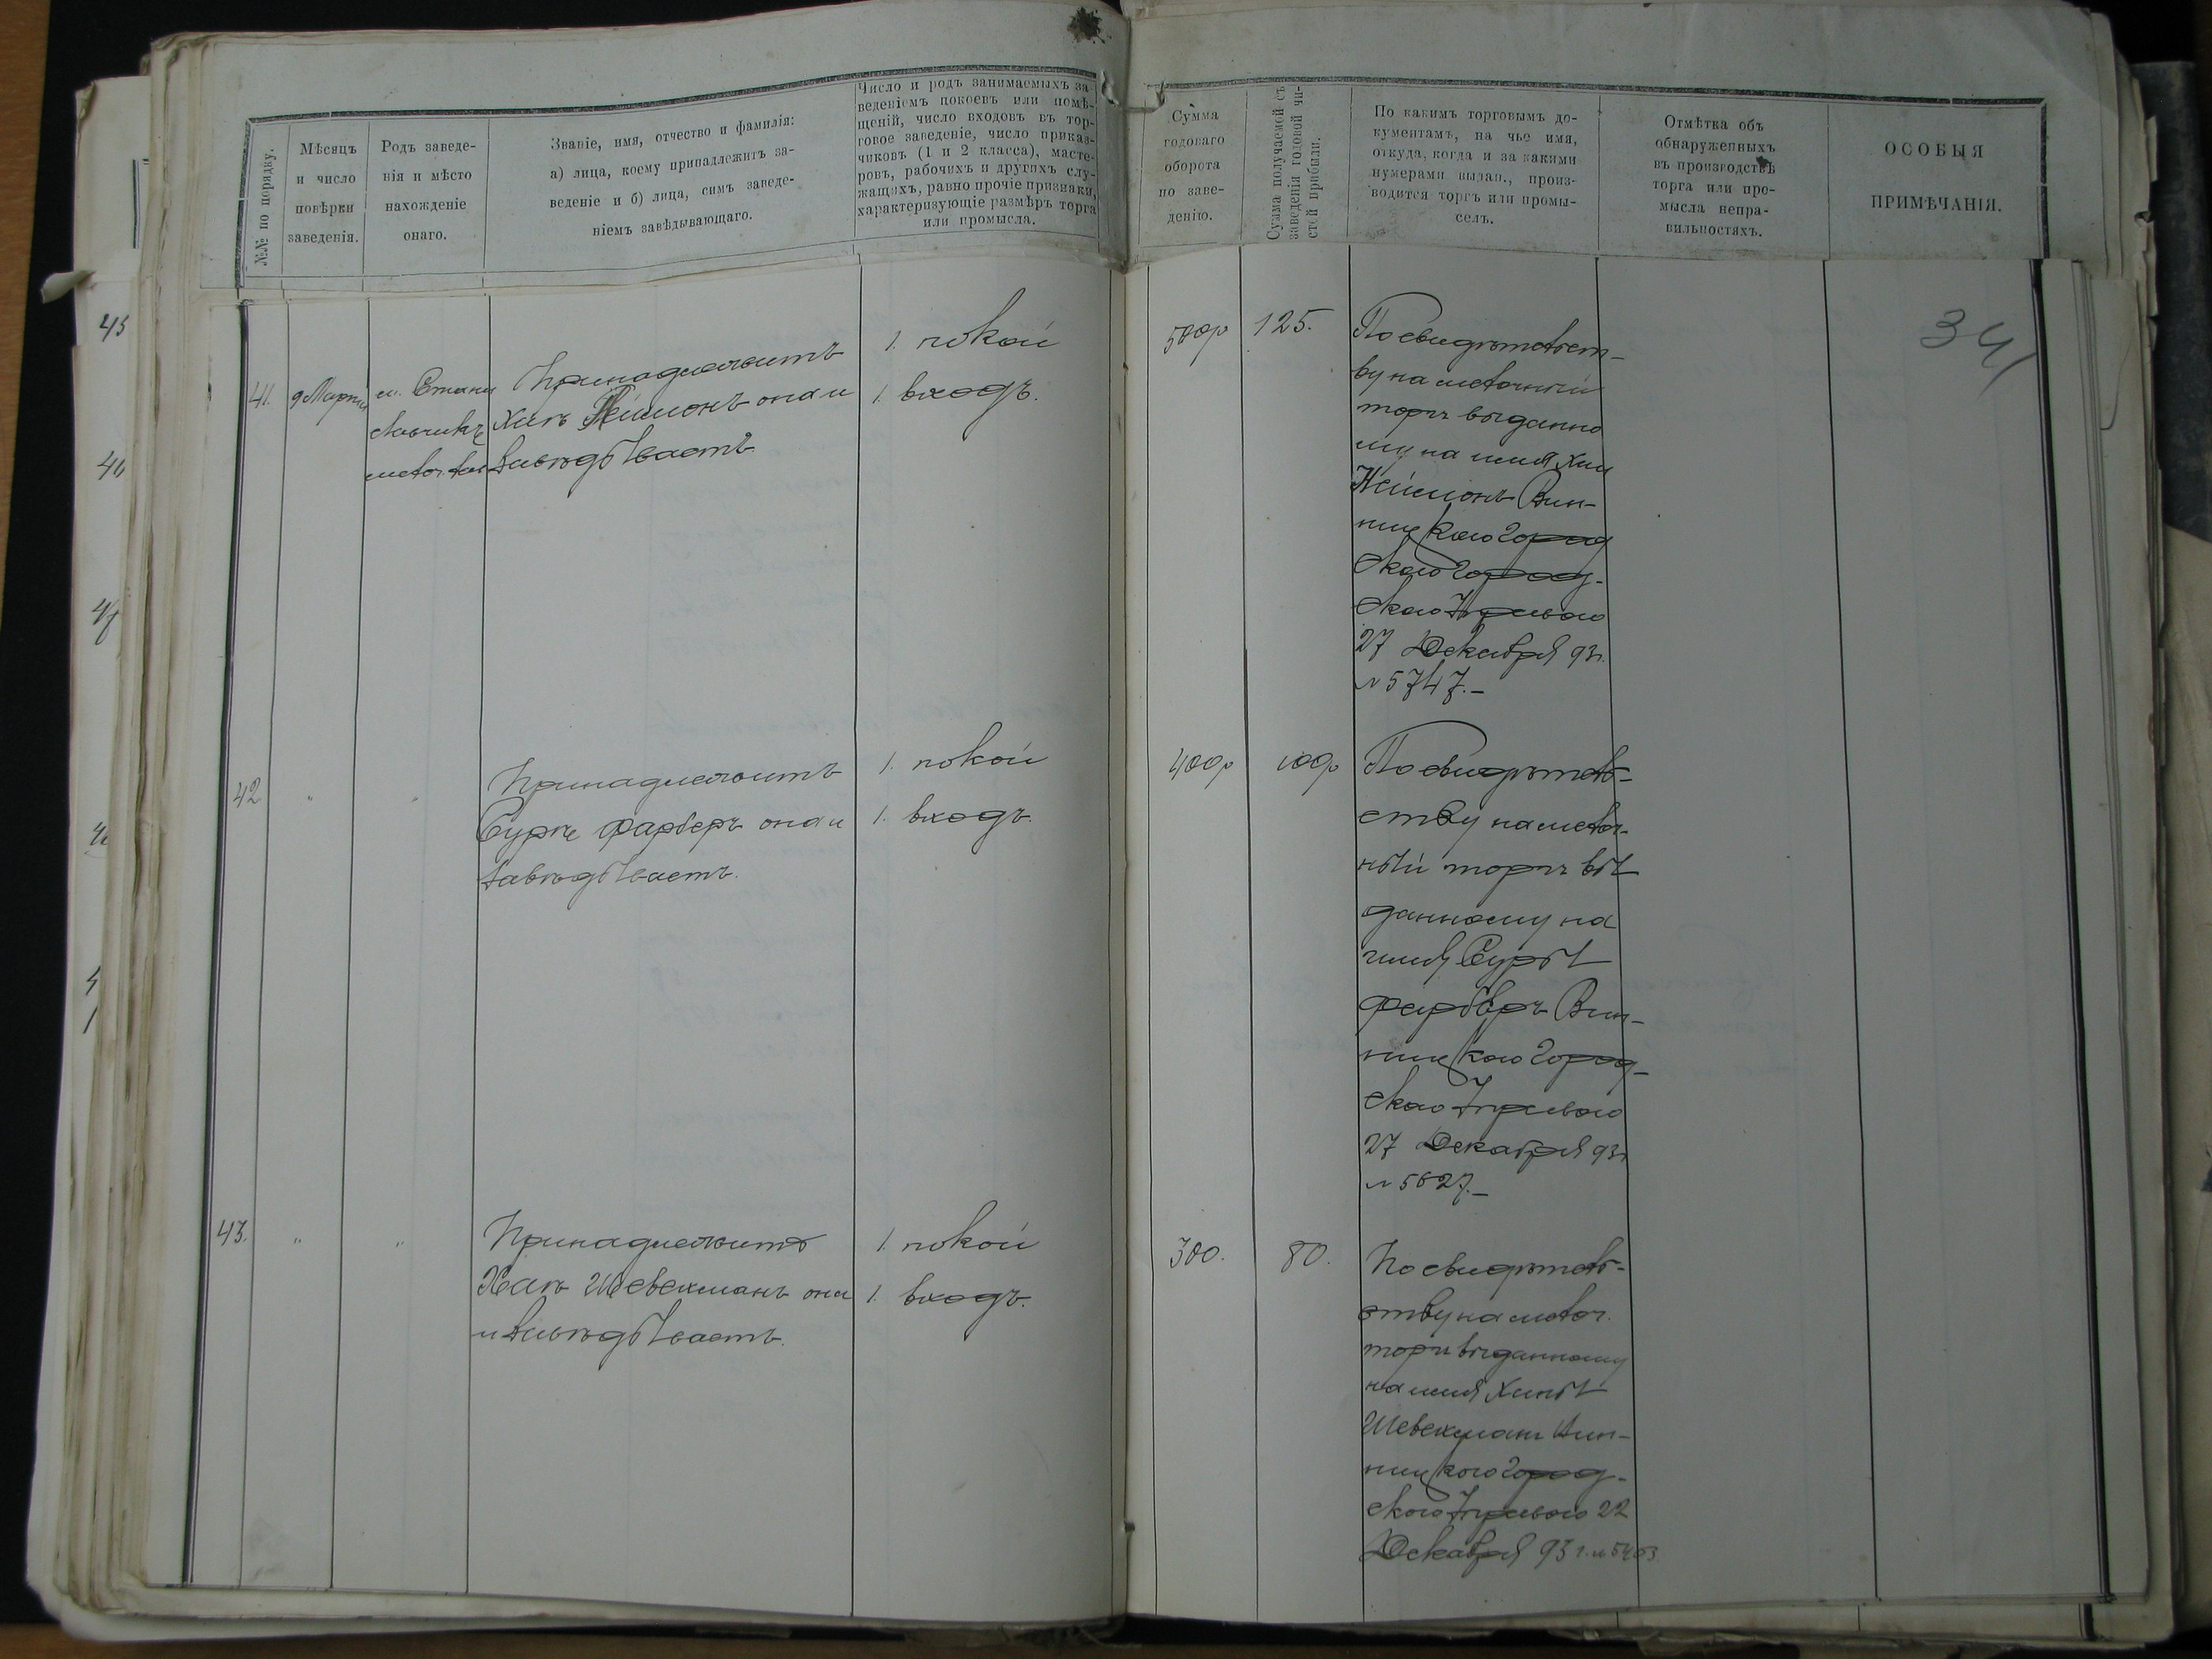 №№ по порядку.
Мѣсяцъ
и число
повѣрки
заведенія.
Родъ заведе-
нія и мѣсто
нахожденіе
онаго.
Званіе, имя, отчество и фамилія:
а) лица, коему принадлежитъ за-
веденіе и б) лица, симъ заведе-
ніемъ завѣдывающаго.
Число и родъ занимаемыхъ за-
веденіемъ покоевъ или помѣ-
щеній, число входовъ въ тор-
говое заведеніе, число приказ-
чиковъ (1 и 2 класса), масте-
ровъ, рабочихъ и другихъ слу-
жащихъ, равно прочіе признаки,
характеризующіе размѣръ торга
или промысла.
Сумма
годоваго
оборота
по заве-
денію.
Сумма получаемой съ
заведенія годовой чи-
стой прибыли.
По какимъ торговымъ до-
кументамъ, на чье имя,
откуда, когда и за какими
нумерами выдан., произ-
водится торгъ или промы-
селъ.
Отмѣтка объ
обнаруженныхъ
въ производствѣ
торга или про-
мысла непра-
вильностяхъ.
ОСОБЫЯ
ПРИМѢЧАНІЯ.
34
41.
9 Марта
м. Стани
славчикъ
Принадлежитъ
она и
завѣдываетъ
1. покой
1. входъ.
500р
125.
По свидѣтельст-
ву на мелочный
торгъ выданно
му на имя Хаи
Нейманъ Вин-
ницкаго Город
скаго Город-
скаго Управою
27 Декабря 93г.
№ 5747.-
42
"
"
Принадлежитъ
Сурѣ Фарберъ она и
завѣдываетъ.
1. покой
1. входъ.
400р
100р
По свидѣтель-
ству на мелоч-
ный торгъ вы
данному на
имя Суры
Фарберъ Вин-
ницкаго Город-
скаго Управою
27 Декабря 93г
№ 5627.-
43.
"
"
Принадлежитъ
она
и завѣдываетъ.
1. покой
1. входъ.
300.
80.
По свидѣтель-
ству на мелоч.
торгъ выданному
на имя
Вин-
ницкаго Город-
скаго Управою 22
Декабря 93 г. №